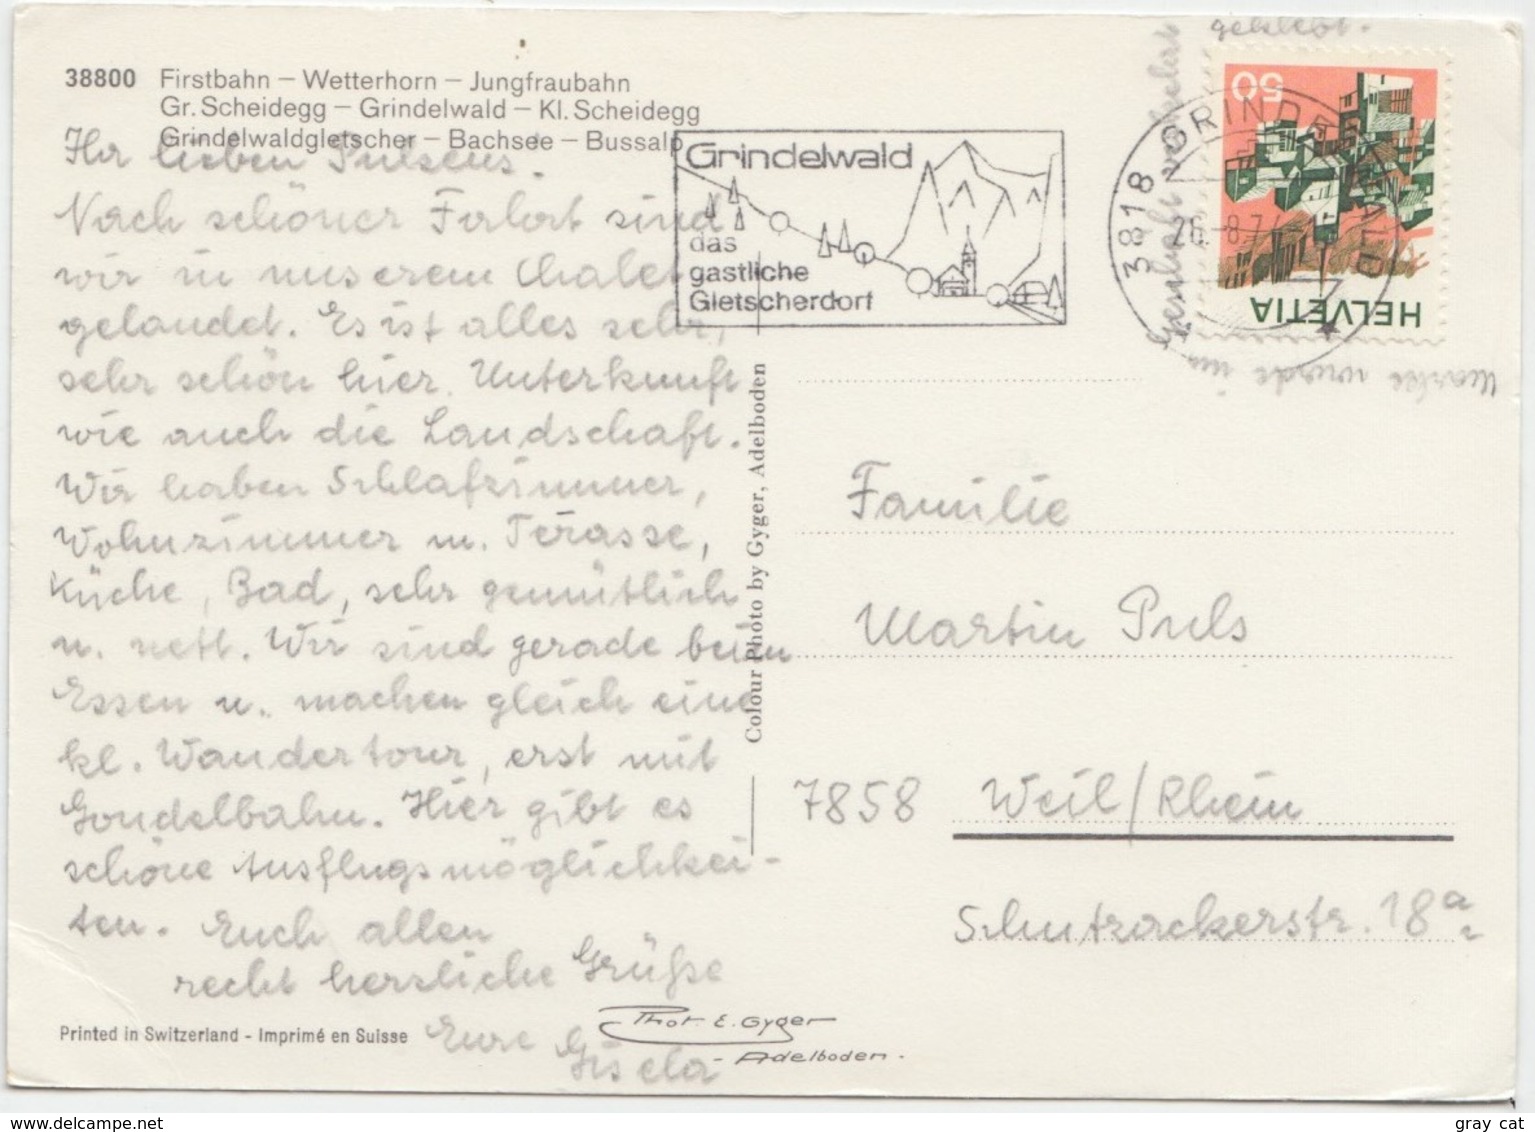 38800 Firstbahn – Wetterhorn – Jungfraubahn
Gr. Scheidegg – Grindelwald – Kl. Scheidegg
Grindelwaldgletscher – Bachsee – Bussalp
Ihr lieben Pulsens.
Nach schöner Fahrt sind
wir in unserem Chalet
gelandet. Es ist alles sehr,
sehr schön hier. Unterkunft
wie auch die Landschaft.
Wir haben Schlafzimmer,
Wohnzimmer m. Terasse,
Küche, Bad, sehr gemütlich
u. nett. Wir sind gerade beim
Essen u. machen gleich eine
kl. Wandertour, erst mit
Gondelbahn. Hier gibt es
schöne Ausflugsmöglichkei-
ten. Euch allen
recht herzliche Grüße
Eure Gisela
Printed in Switzerland - Imprimé en Suisse
Phot. E. Gyger
Adelboden.
Colour Photo by Gyger, Adelboden
Grindelwald
das
gastliche
Gletscherdorf
3818 GRINDELWALD
26.-8.74
50
HELVETIA
Marke wurde im
Geschäft verkehrt
geklebt.
Familie
Martin Puls
7858 Weil/Rhein
Schutzackerstr. 18a
delcampe.net
gray cat